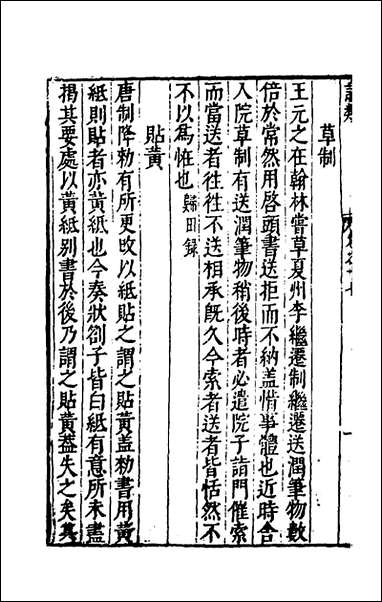 草制
王元之在翰林嘗草夏州李繼遷制繼遷送潤筆物數
倍於常然用啓頭書送拒而不納盖惜事體也近時舎
人院草制有送潤筆物稍後時者必遣院子詣門催索
而當送者往往不送相承既久今索者送者皆恬然不
不以為怪也歸田錄
貼黄
唐制降勑有所更改以紙貼之謂之貼黄盖勑書用黄
紙則貼者亦黄紙也今奏狀劄子皆白紙有意所未盡
揭其要處以黄紙别書於後乃謂之貼黄葢失之矣其